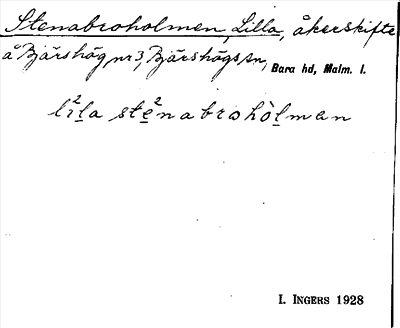 Stenabroholmen, Lilla, åkerskifte
å Bjärshög nr 3, Bjärshögs sn, Bara hd, Malm. l.
li²la ste²nabrohòlman
I. INGERS 1928